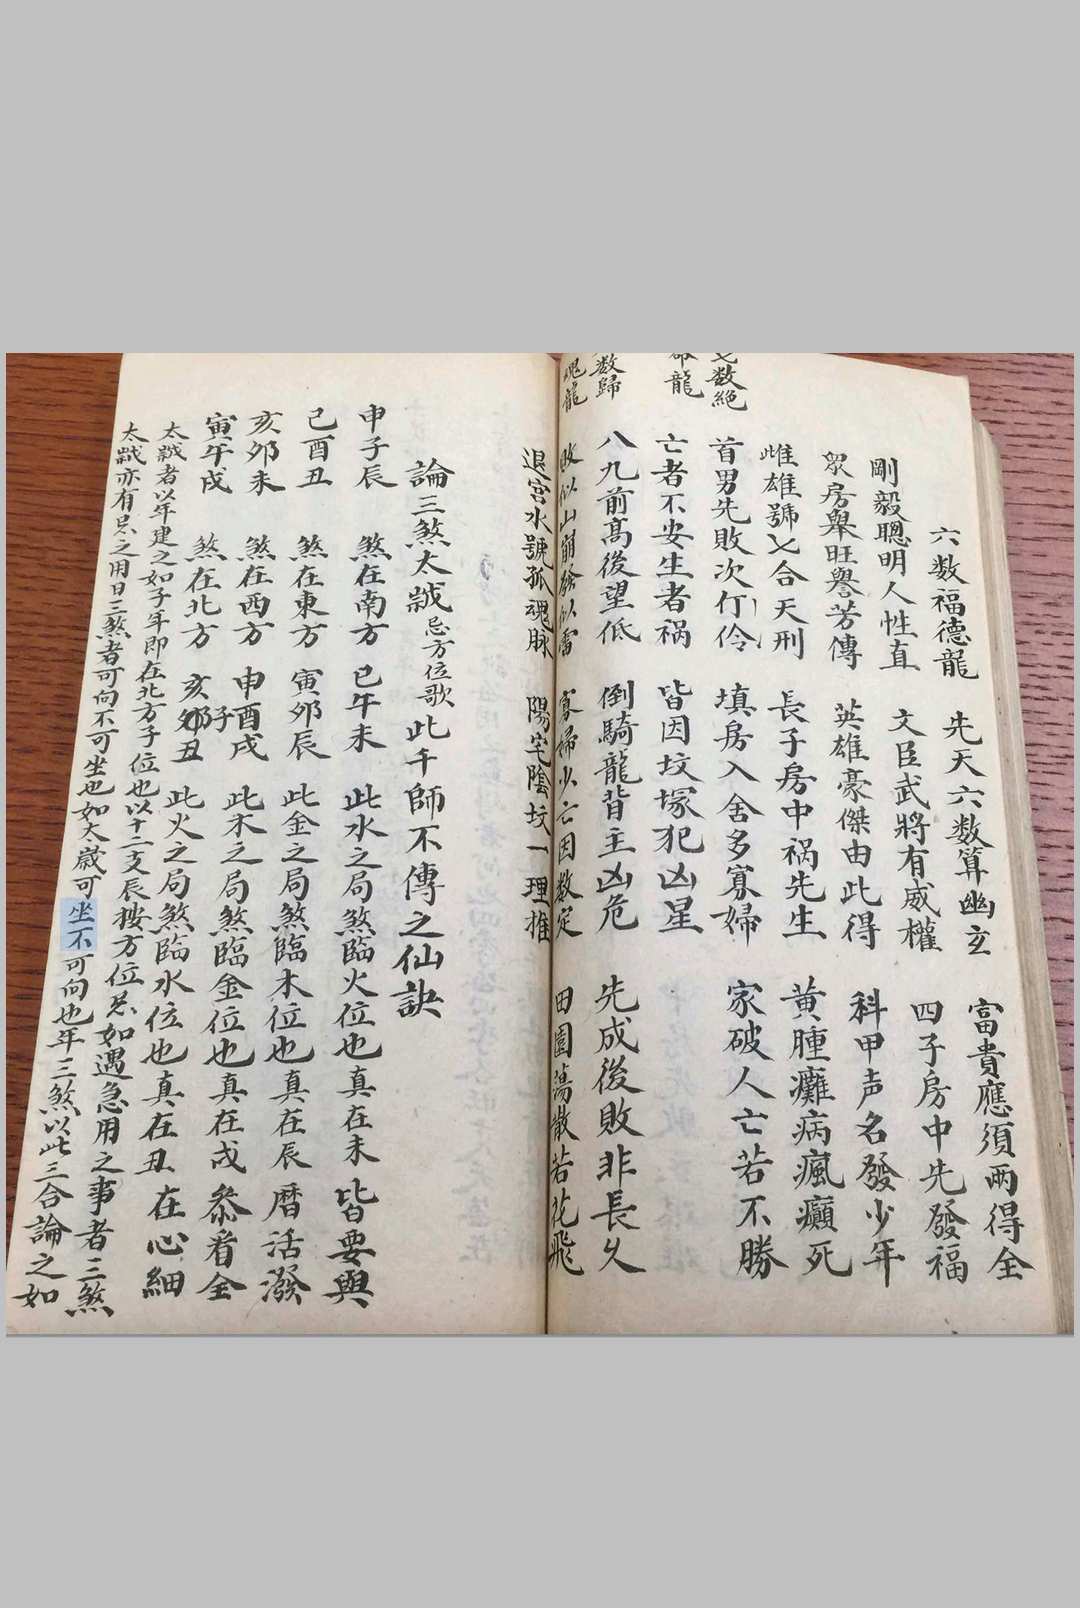 六数福德龍 先天六数算幽玄 富貴應須两得全
剛毅聰明人性直 文臣武將有威權 四子房中先發福
眾房舉旺譽芳傳 英雄豪傑由此得 科甲声名發少年
雌雄號七合天刑 長子房中禍先生 黄腫癱病瘋癲死
首男先敗次伶 填房入舍多寡婦 家破人亡若不勝
七数絶
龍
亡者不安生者祸 皆因坟塚犯凶星
八九前髙後望低 倒騎龍背主凶危 先成後敗非長久
数歸
魂龍
敗似山崩似雷 寡婦少亡因数定 田園蕩散若花飛
退宫水號孤魂脉 陽宅陰坟一理推
論三煞太歲忌方位歌 此千師不傳之仙訣
申子辰 煞在南方 巳午未 此水之局煞臨火位也真在未 皆要與
己酉丑 煞在東方 寅夘辰 此金之局煞臨木位也真在辰 曆活潑
亥夘未 煞在西方 申酉戌 此木之局煞臨金位也真在戌 叅看全
寅午戌 煞在北方 亥子丑 此火之局煞臨水位也真在丑 在心細
太歲者以年建之如子年即在北方子位也以十二支辰按方位忌如遇急用之事者三煞
太歲亦有忌之用日三煞者可向不可坐也如太歲可坐不可向也年三煞以此三合論之如